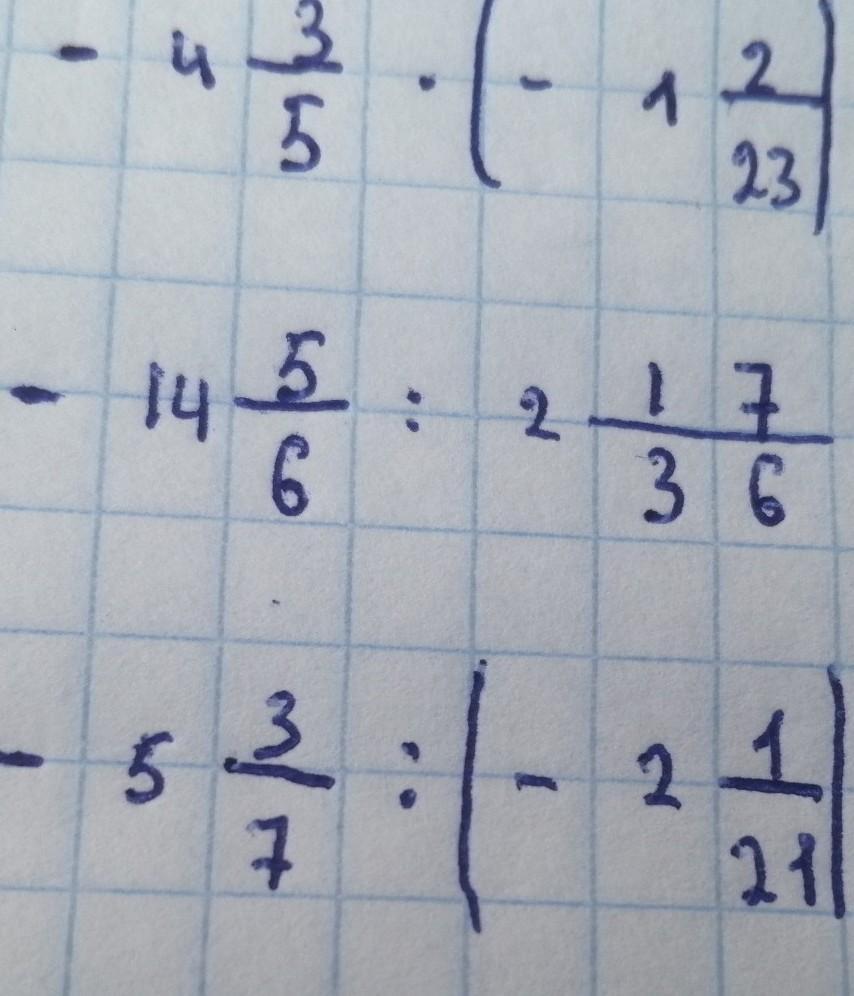 - 4 3/5 · (- 1 2/23)
- 14 5/6 : 2 17/36
- 5 3/7 : (- 2 1/21)